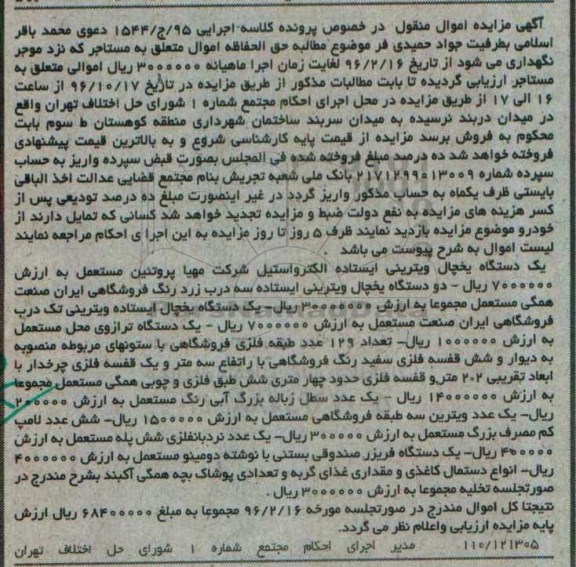 آگهی مزایده اموال منقول در خصوص پرونده کلاسه اجرایی ۹۵/ج/۱۵۴۴ دعوی محمد باقر
اسلامی بطرفیت جواد حمیدی فر موضوع مطالبه حق الحفاظه اموال متعلق به مستاجر که نزد موجر
نگهداری می شود از تاریخ ۹۶/۲/۱۶ لغایت زمان اجرا ماهیانه ۳۰۰۰۰۰۰ ریال اموالی متعلق به
مستاجر ارزیابی گردیده تا بابت مطالبات مذکور از طریق مزایده در تاریخ ۹۶/۱۰/۱۷ از ساعت
۱۶ الی ۱۷ از طریق مزایده در محل اجرای احکام مجتمع شماره ۱ شورای حل اختلاف تهران واقع
در میدان دربند نرسیده به میدان سربند ساختمان شهرداری منطقه کوهستان ط سوم بابت
محکوم به فروش برسد مزایده از قیمت پایه کارشناسی شروع و به بالاترین قیمت پیشنهادی
فروخته خواهد شد ده درصد مبلغ فروخته شده فی المجلس بصورت قبض سپرده واریز به حساب
سپرده شماره ۲۱۷۱۲۹۹۰۱۳۰۰۹ بانک ملی شعبه تجریش بنام مجتمع قضایی عدالت اخذ الباقی
بایستی ظرف یکماه به حساب مذکور واریز گردد در غیر اینصورت مبلغ ده درصد تودیعی پس از
کسر هزینه های مزایده به نفع دولت ضبط و مزایده تجدید خواهد شد کسانی که تمایل دارند از
خودرو موضوع مزایده بازدید نمایند ظرف ۵ روز تا روز مزایده به این اجرا ی احکام مراجعه نمایند
لیست اموال به شرح پیوست می باشد .
یک دستگاه یخچال ویترینی ایستاده الکترواستیل شرکت مهیا پروتئین مستعمل به ارزش
۷۰۰۰۰۰۰ ریال - دو دستگاه یخچال ویترینی ایستاده سه درب زرد رنگ فروشگاهی ایران صنعت
همگی مستعمل مجموعا به ارزش ۳۰۰۰۰۰۰۰ ریال- یک دستگاه یخچال ایستاده ویترینی تک درب
فروشگاهی ایران صنعت مستعمل به ارزش ۷۰۰۰۰۰۰ ریال - یک دستگاه ترازوی محل مستعمل
به ارزش ۱۰۰۰۰۰۰ ریال- تعداد ۱۲۹ عدد طبقه فلزی فروشگاهی با ستونهای مربوطه منصوبه
به دیوار و شش قفسه فلزی سفید رنگ فروشگاهی با راتفاع سه متر و یک قفسه فلزی چرخدار با
ابعاد تقریبی ۲*۲ متر و قفسه فلزی حدود چهار متری شش طبق فلزی و چوبی همگی مستعمل مجموعا
به ارزش ۱۴۰۰۰۰۰۰ ریال - یک عدد سطل زباله بزرگ آبی رنگ مستعمل به ارزش ۲۰۰۰۰۰
ریال- یک عدد ویترین سه طبقه فروشگاهی مستعمل به ارزش ۱۵۰۰۰۰۰ ریال- شش عدد لامپ
کم مصرف بزرگ مستعمل به ارزش ۳۰۰۰۰۰ ریال- یک عدد نردبانفلزی شش پله مستعمل به ارزش
۴۰۰۰۰۰ ریال- یک دستگاه فریزر صندوقی بستنی با نوشته دومینو مستعمل به ارزش ۴۰۰۰۰۰۰
ریال- انواع دستمال کاغذی و مقداری غذای گربه و تعدادی پوشاک بچه همگی آکبند بشرح مندرج در
صورتجلسه تخلیه مجموعا به ارزش ۳۰۰۰۰۰۰ ریال .
نتیجتا کل اموال مندرج در صورتجلسه مورخه ۹۶/۲/۱۶ مجموعا به مبلغ ۶۸۴۰۰۰۰۰ ریال ارزش
پایه مزایده ارزیابی واعلام نظر می گردد.
۱۱۰/۱۲۱۳۰۵ مدیر اجرای احکام مجتمع شماره ۱ شورای حل اختلاف تهران